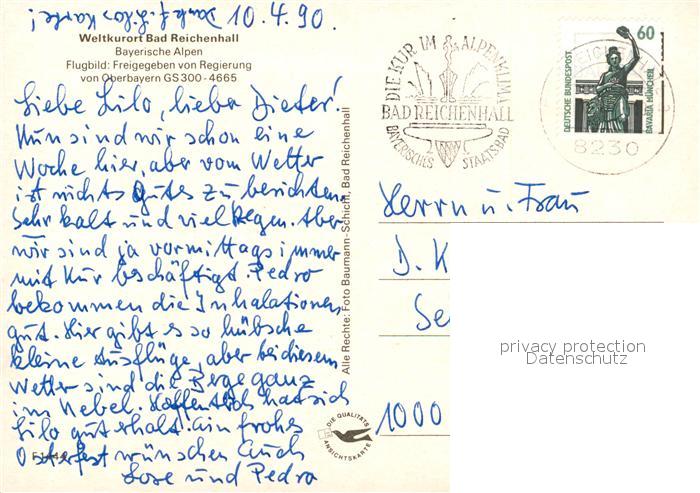 Dank f. Lilos Karte! 10.4.90.
Weltkurort Bad Reichenhall
Bayerische Alpen
Flugbild: Freigegeben von Regierung
von Oberbayern GS 300-4665
Liebe Lilo, lieber Dieter!
Nun sind wir schon eine
Woche hier, aber vom Wetter
ist nichts Gutes zu berichten.
Sehr kalt und viel Regen. Aber
wir sind ja vormittags immer
mit Kur beschäftigt. Pedro
bekommen die Inhalationen
gut. Hier gibt es so hübsche
kleine Ausflüge, aber bei diesem
Wetter sind die Berge ganz
im Nebel. Hoffentlich hat sich
Lilo gut erholt. Ein frohes
Osterfest wünschen Euch
Lose und Pedro
Alle Rechte: Foto Baumann-Schicht, Bad Reichenhall
DIE KUR IM ALPENKLIMA
BAD REICHENHALL
BAYERISCHES STAATSBAD
60
DEUTSCHE BUNDESPOST
BAVARIA MÜNCHEN
REICHENHALL
8230
Herrn u. Frau
D. K
Se
1000
DIE QUALITÄTS
ANSICHTSKARTE
privacy protection
Datenschutz